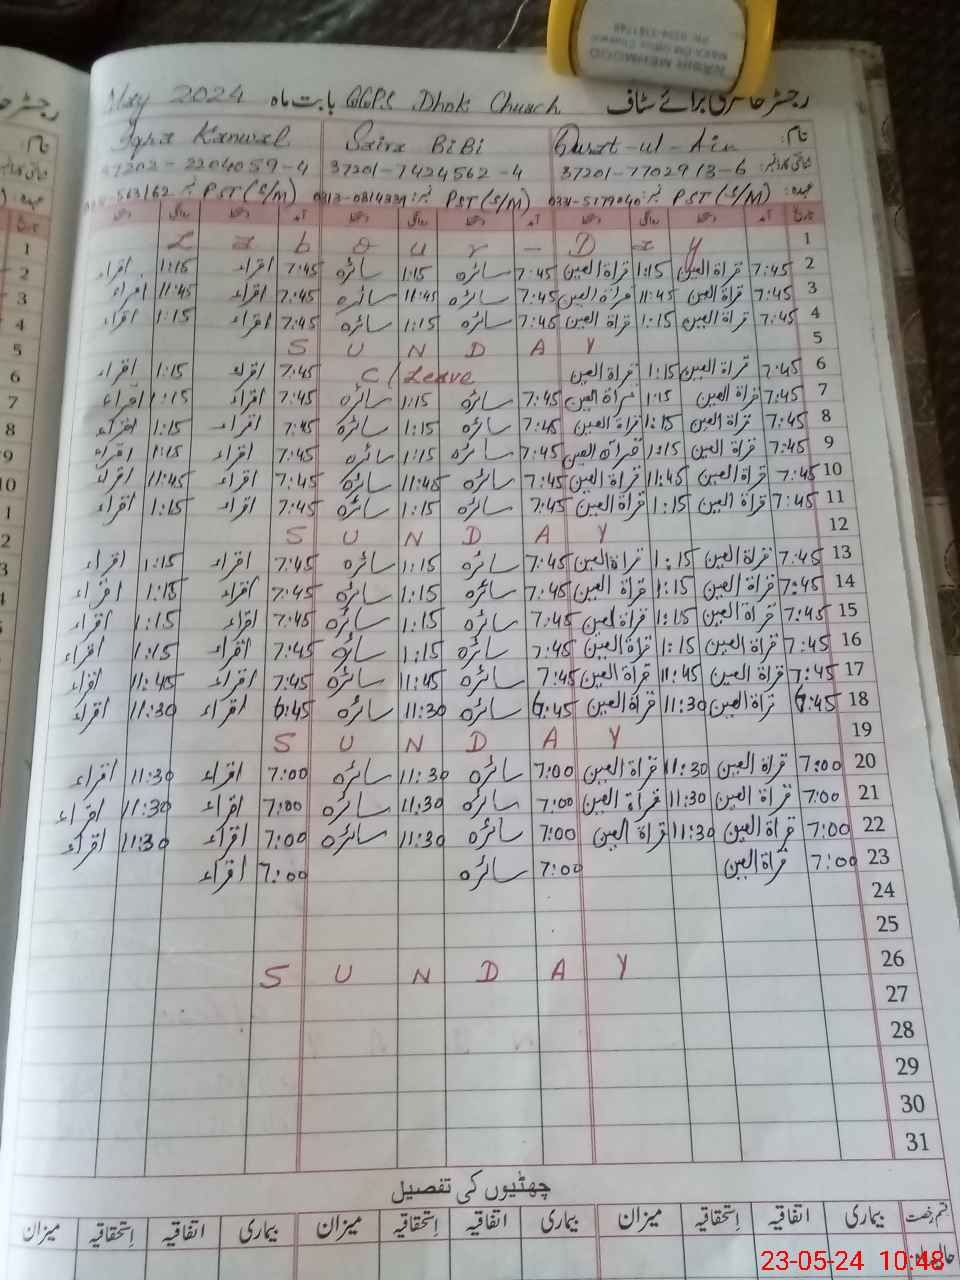 رجسٹر حاضری برائے سٹاف GGPS Dhok Church بابت ماہ May 2024
نام: Qurat-ul-Ain Saira BiBi Iqra Kanwal
37201-7702913-6 37201-7424562-4 37202-2204059-4
عہدہ: PST (S/M) PST (S/M) PST (S/M)
1 Labour-Day
2 7:45 قراۃ العین 1:15 قراۃ العین 7:45 سائرہ 1:15 سائرہ 7:45 اقراء 1:15 اقراء
3 7:45 قراۃ العین 11:45 قراۃ العین 7:45 سائرہ 11:45 سائرہ 7:45 اقراء 11:45 اقراء
4 7:45 قراۃ العین 1:15 قراۃ العین 7:45 سائرہ 1:15 سائرہ 7:45 اقراء 1:15 اقراء
5 SUNDAY
6 7:45 قراۃ العین 1:15 قراۃ العین C/Leave 7:45 اقراء 1:15 اقراء
7 7:45 قراۃ العین 1:15 قراۃ العین 7:45 سائرہ 1:15 سائرہ 7:45 اقراء 1:15 اقراء
8 7:45 قراۃ العین 1:15 قراۃ العین 7:45 سائرہ 1:15 سائرہ 7:45 اقراء 1:15 اقراء
9 7:45 قراۃ العین 1:15 قراۃ العین 7:45 سائرہ 1:15 سائرہ 7:45 اقراء 1:15 اقراء
10 7:45 قراۃ العین 11:45 قراۃ العین 7:45 سائرہ 11:45 سائرہ 7:45 اقراء 11:45 اقراء
11 7:45 قراۃ العین 1:15 قراۃ العین 7:45 سائرہ 1:15 سائرہ 7:45 اقراء 1:15 اقراء
12 SUNDAY
13 7:45 قراۃ العین 1:15 قراۃ العین 7:45 سائرہ 1:15 سائرہ 7:45 اقراء 1:15 اقراء
14 7:45 قراۃ العین 1:15 قراۃ العین 7:45 سائرہ 1:15 سائرہ 7:45 اقراء 1:15 اقراء
15 7:45 قراۃ العین 1:15 قراۃ العین 7:45 سائرہ 1:15 سائرہ 7:45 اقراء 1:15 اقراء
16 7:45 قراۃ العین 1:15 قراۃ العین 7:45 سائرہ 1:15 سائرہ 7:45 اقراء 1:15 اقراء
17 7:45 قراۃ العین 11:45 قراۃ العین 7:45 سائرہ 11:45 سائرہ 7:45 اقراء 11:45 اقراء
18 6:45 قراۃ العین 11:30 قراۃ العین 6:45 سائرہ 11:30 سائرہ 6:45 اقراء 11:30 اقراء
19 SUNDAY
20 7:00 قراۃ العین 11:30 قراۃ العین 7:00 سائرہ 11:30 سائرہ 7:00 اقراء 11:30 اقراء
21 7:00 قراۃ العین 11:30 قراۃ العین 7:00 سائرہ 11:30 سائرہ 7:00 اقراء 11:30 اقراء
22 7:00 قراۃ العین 11:30 قراۃ العین 7:00 سائرہ 11:30 سائرہ 7:00 اقراء 11:30 اقراء
23 7:00 قراۃ العین 7:00 سائرہ 7:00 اقراء
24
25
26 SUNDAY
27
28
29
30
31
چھٹیوں کی تفصیل
قسم رخصت بیماری اتفاقیہ اِستحقاقیہ میزان بیماری اتفاقیہ اِستحقاقیہ میزان بیماری اتفاقیہ اِستحقاقیہ میزان
23-05-24 10:48